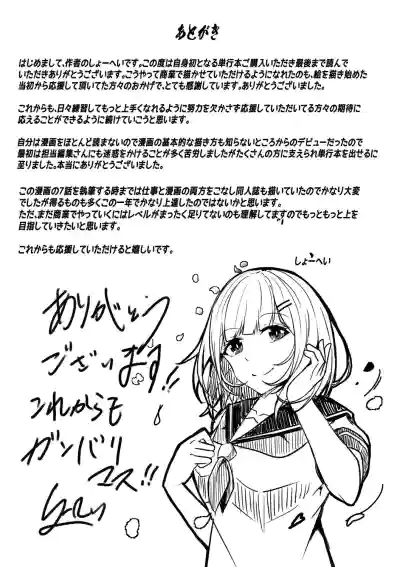 あとがき
はじめまして、作者のしょーへいです。この度は自身初となる単行本ご購入いただき最後まで読んで
いただきありがとうございます。こうやって商業で描かせていただけるようになれたのも、絵を描き始めた
当初から応援して頂いてた方々のおかげで、とても感謝しています。ありがとうございました。
これからも、日々練習してもっと上手くなれるように努力を欠かさず応援していただいてる方々の期待に
応えることができるように続けていこうと思います。
自分は漫画をほとんど読まないので漫画の基本的な描き方も知らないところからのデビューだったので
最初は担当編集さんにも迷惑をかけることが多く苦労しましたがたくさんの方に支えられ単行本を出せるに
至りました。本当にありがとうございました。
この漫画の7話を執筆する時までは仕事と漫画の両方をこなし同人誌も描いていたのでかなり大変
でしたが得るものも多くこの一年でかなり上達したのではないかと思います。
ただ、まだ商業でやっていくにはレベルがまったく足りてないのも理解してますのでもっともっと上を
目指していきたいと思います。
これからも応援していただけると嬉しいです。
しょーへい
ありがとう
ございます!!
これからも
ガンバリ
マス!!